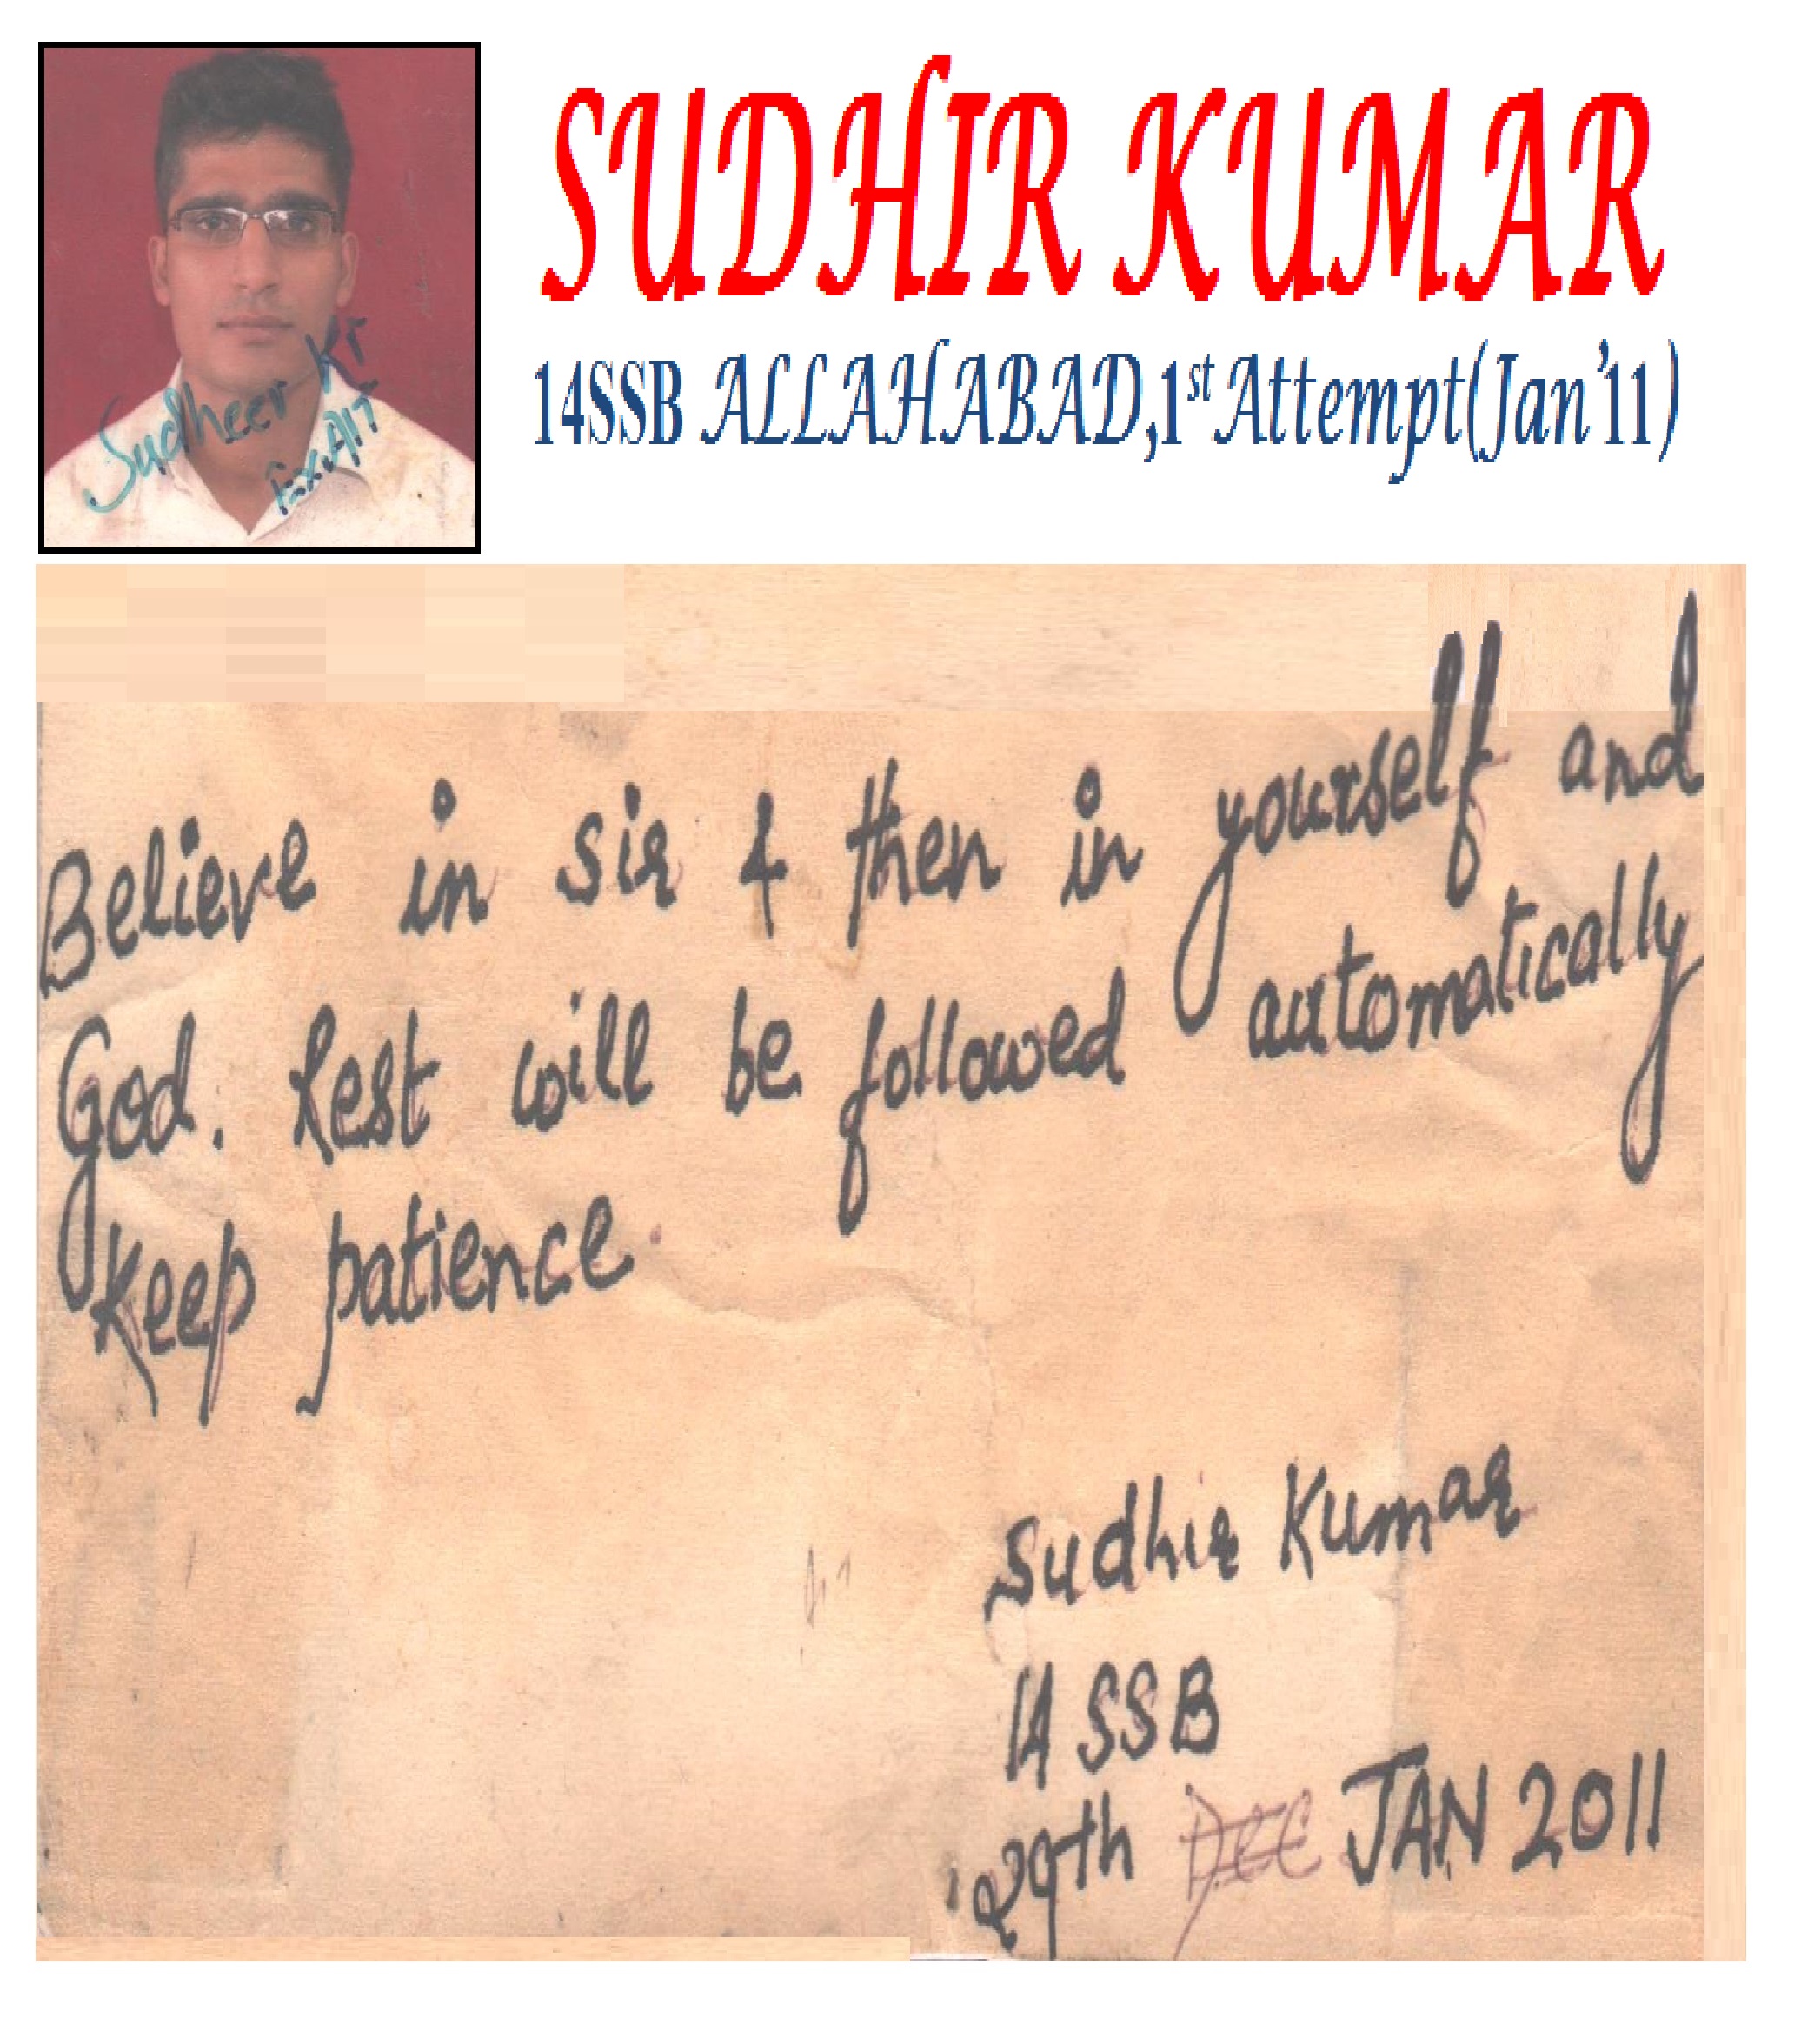 SUDHIR KUMAR
14SSB ALLAHABAD,1st Attempt(Jan'11)
Sudheer Kr
Ex.AIT
Believe in sir & then in yourself and
God. Rest will be followed automatically
Keep patience.
Sudhir Kumar
14 SSB
29th DEC JAN 2011